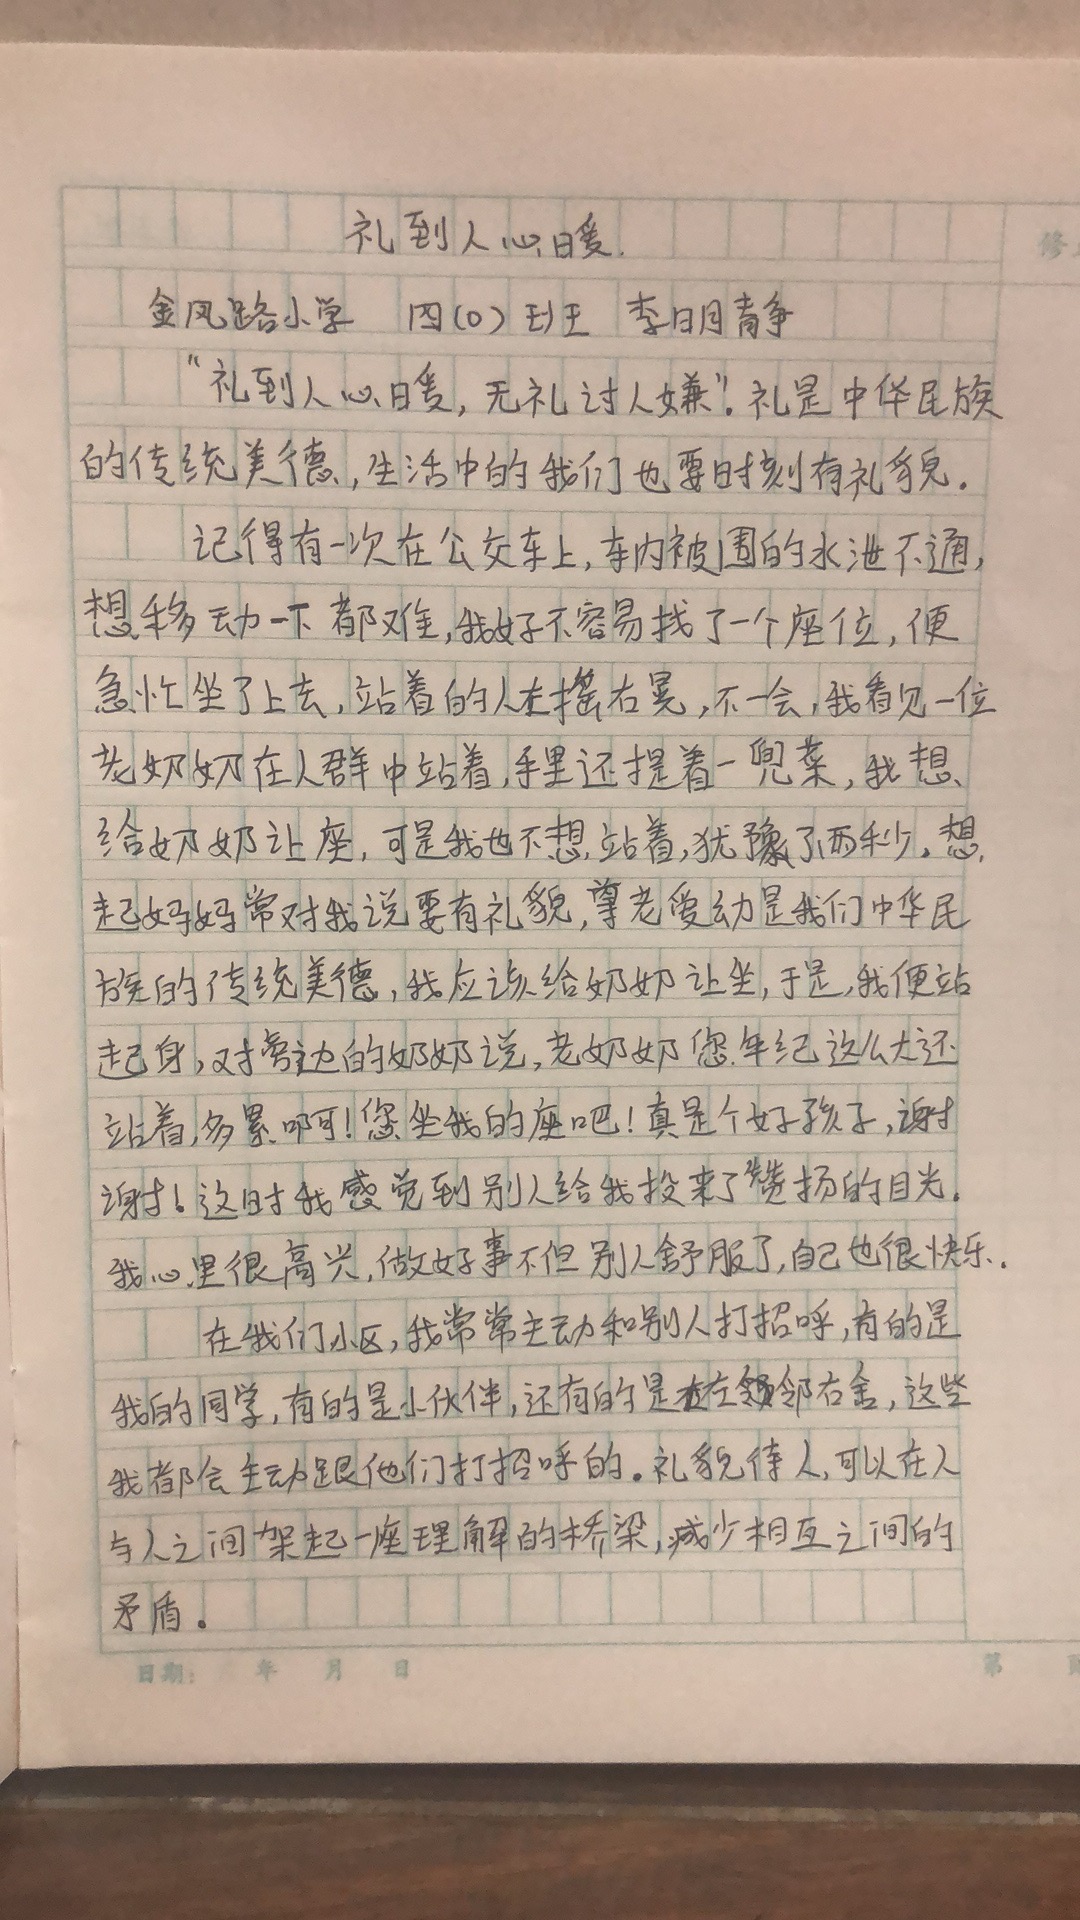 礼到人心暖.
金凤路小学 四(0)班 李明静
"礼到人心暖,无礼讨人嫌".礼是中华民族
的传统美德,生活中的我们也要时刻有礼貌.
记得有一次在公交车上,车内被围的水泄不通,
想移动一下都难,我好不容易找了一个座位,便
急忙坐了上去,站着的人左摇右晃,不一会,我看见一位
老奶奶在人群中站着,手里还提着一兜菜,我想
给奶奶让座,可是我也不想站着,犹豫了两秒.想
起妈妈常对我说要有礼貌,尊老爱幼是我们中华民
族的传统美德,我应该给奶奶让坐,于是,我便站
起身,对旁边的奶奶说,老奶奶您年纪这么大还
站着,多累啊!您坐我的座吧!真是个好孩子,谢
谢!这时我感觉到别人给我投来了赞扬的目光.
我心里很高兴,做好事不但别人舒服了,自己也很快乐.
在我们小区,我常常主动和别人打招呼,有的是
我的同学,有的是小伙伴,还有的是左邻右舍,这些
我都会主动跟他们打招呼的.礼貌待人,可以在人
与人之间架起一座理解的桥梁,减少相互之间的
矛盾.
日期: 年 月 日
第
修